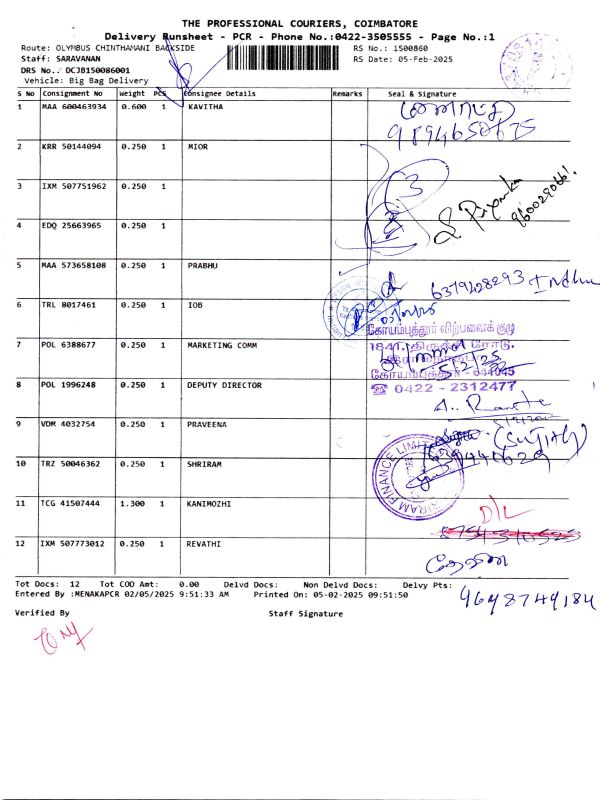 THE PROFESSIONAL COURIERS, COIMBATORE
Delivery Runsheet - PCR - Phone No.:0422-3505555 - Page No.:1
Route: OLYMBUS CHINTHAMANI BACKSIDE
RS No.: 1500860
Staff: SARAVANAN
RS Date: 05-Feb-2025
DRS No.: DCJB150086001
Vehicle: Big Bag Delivery
S No Consignment No Weight PCS Consignee Details Remarks Seal & Signature
1 MAA 600463934 0.600 1 KAVITHA
9894658675
2 KRR 50144094 0.250 1 MIOR
3 IXM 507751962 0.250 1
S Priyanka
4 EDQ 25663965 0.250 1
5 MAA 573658108 0.250 1 PRABHU
6379428293 Indhu
6 TRL 8017461 0.250 1 IOB
கோயம்புத்தூர் விற்பனைக் குழு
7 POL 6388677 0.250 1 MARKETING COMM
1841, திருச்சி ரோடு,
8 POL 1996248 0.250 1 DEPUTY DIRECTOR
0422 - 2312477
9 VDM 4032754 0.250 1 PRAVEENA
(SUJITH)
10 TRZ 50046362 0.250 1 SHRIRAM
SHRIRAM FINANCE LIMITED
11 TCG 41507444 1.300 1 KANIMOZHI
D/L
12 IXM 507773012 0.250 1 REVATHI
Tot Docs: 12 Tot COD Amt: 0.00 Delvd Docs: Non Delvd Docs: Delvy Pts:
Entered By :MENAKAPCR 02/05/2025 9:51:33 AM Printed On: 05-02-2025 09:51:50
9698749184
Verified By Staff Signature